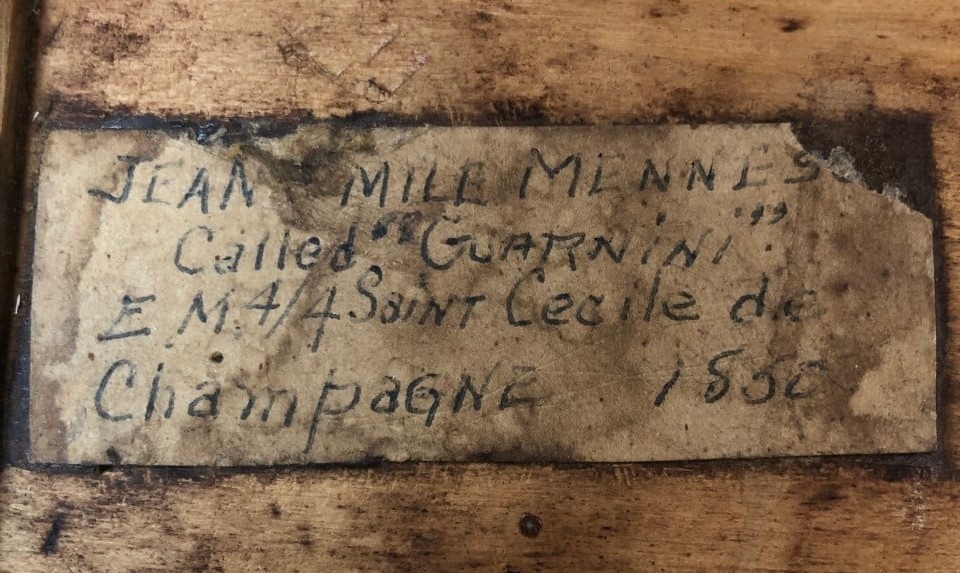 JEAN MILE MENNES
Called "GUARNiNi"
E M 4/4 SAiNT Cecile de
ChampaGNE 1850